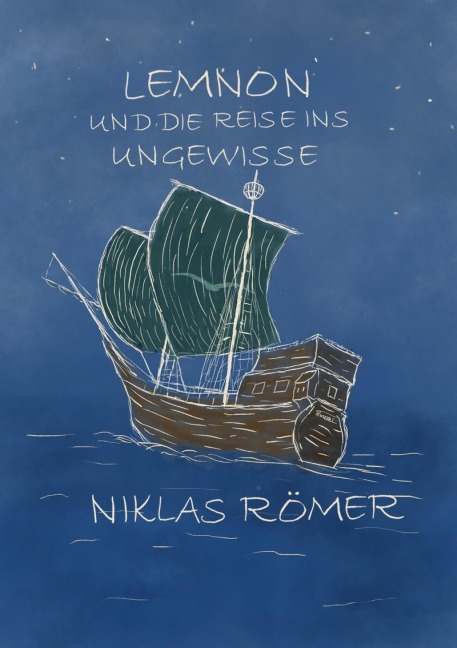 LEMNON
UND DIE REISE INS
UNGEWISSE
NIKLAS RÖMER